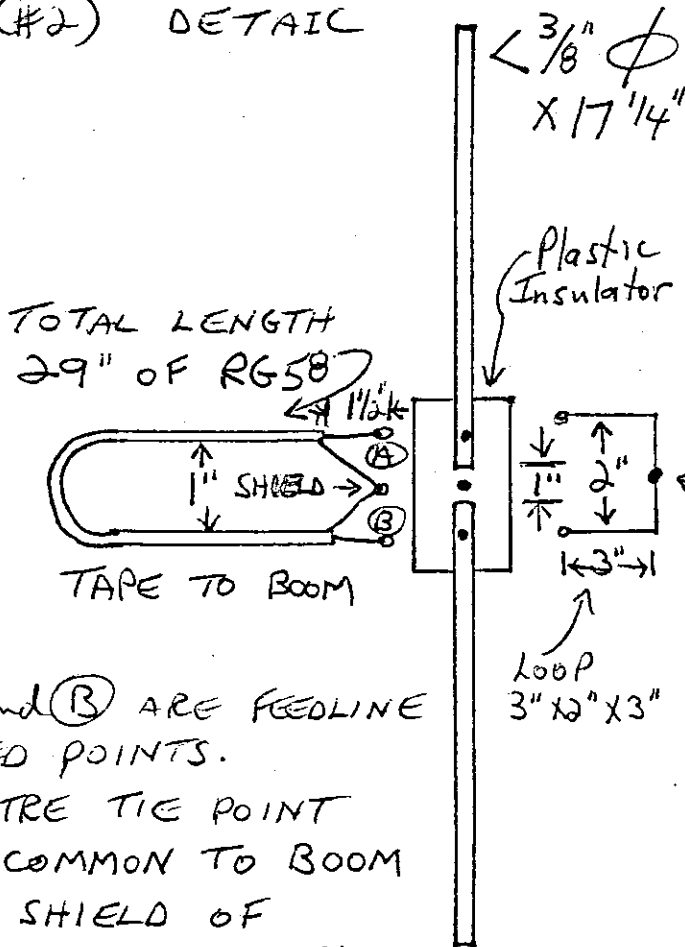 (#2) DETAIL
3/8" ϕ
X 17 1/4"
Plastic
Insulator
TOTAL LENGTH
29" OF RG58
1 1/2"
A
1" SHIELD
B
1"
2"
3"
TAPE TO BOOM
LOOP
3" X 2" X 3"
nd B ARE FEEDLINE
ED POINTS.
TRE TIE POINT
COMMON TO BOOM
SHIELD OF